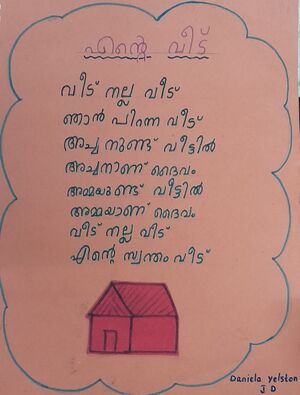 എന്റെ വീട്
വീട് നല്ല വീട്
ഞാൻ പിറന്ന വീട്
അച്ഛനുണ്ട് വീട്ടിൽ
അച്ഛനാണ് ദൈവം
അമ്മയുണ്ട് വീട്ടിൽ
അമ്മയാണ് ദൈവം
വീട് നല്ല വീട്
എന്റെ സ്വന്തം വീട്
Daniela Yelston
I D